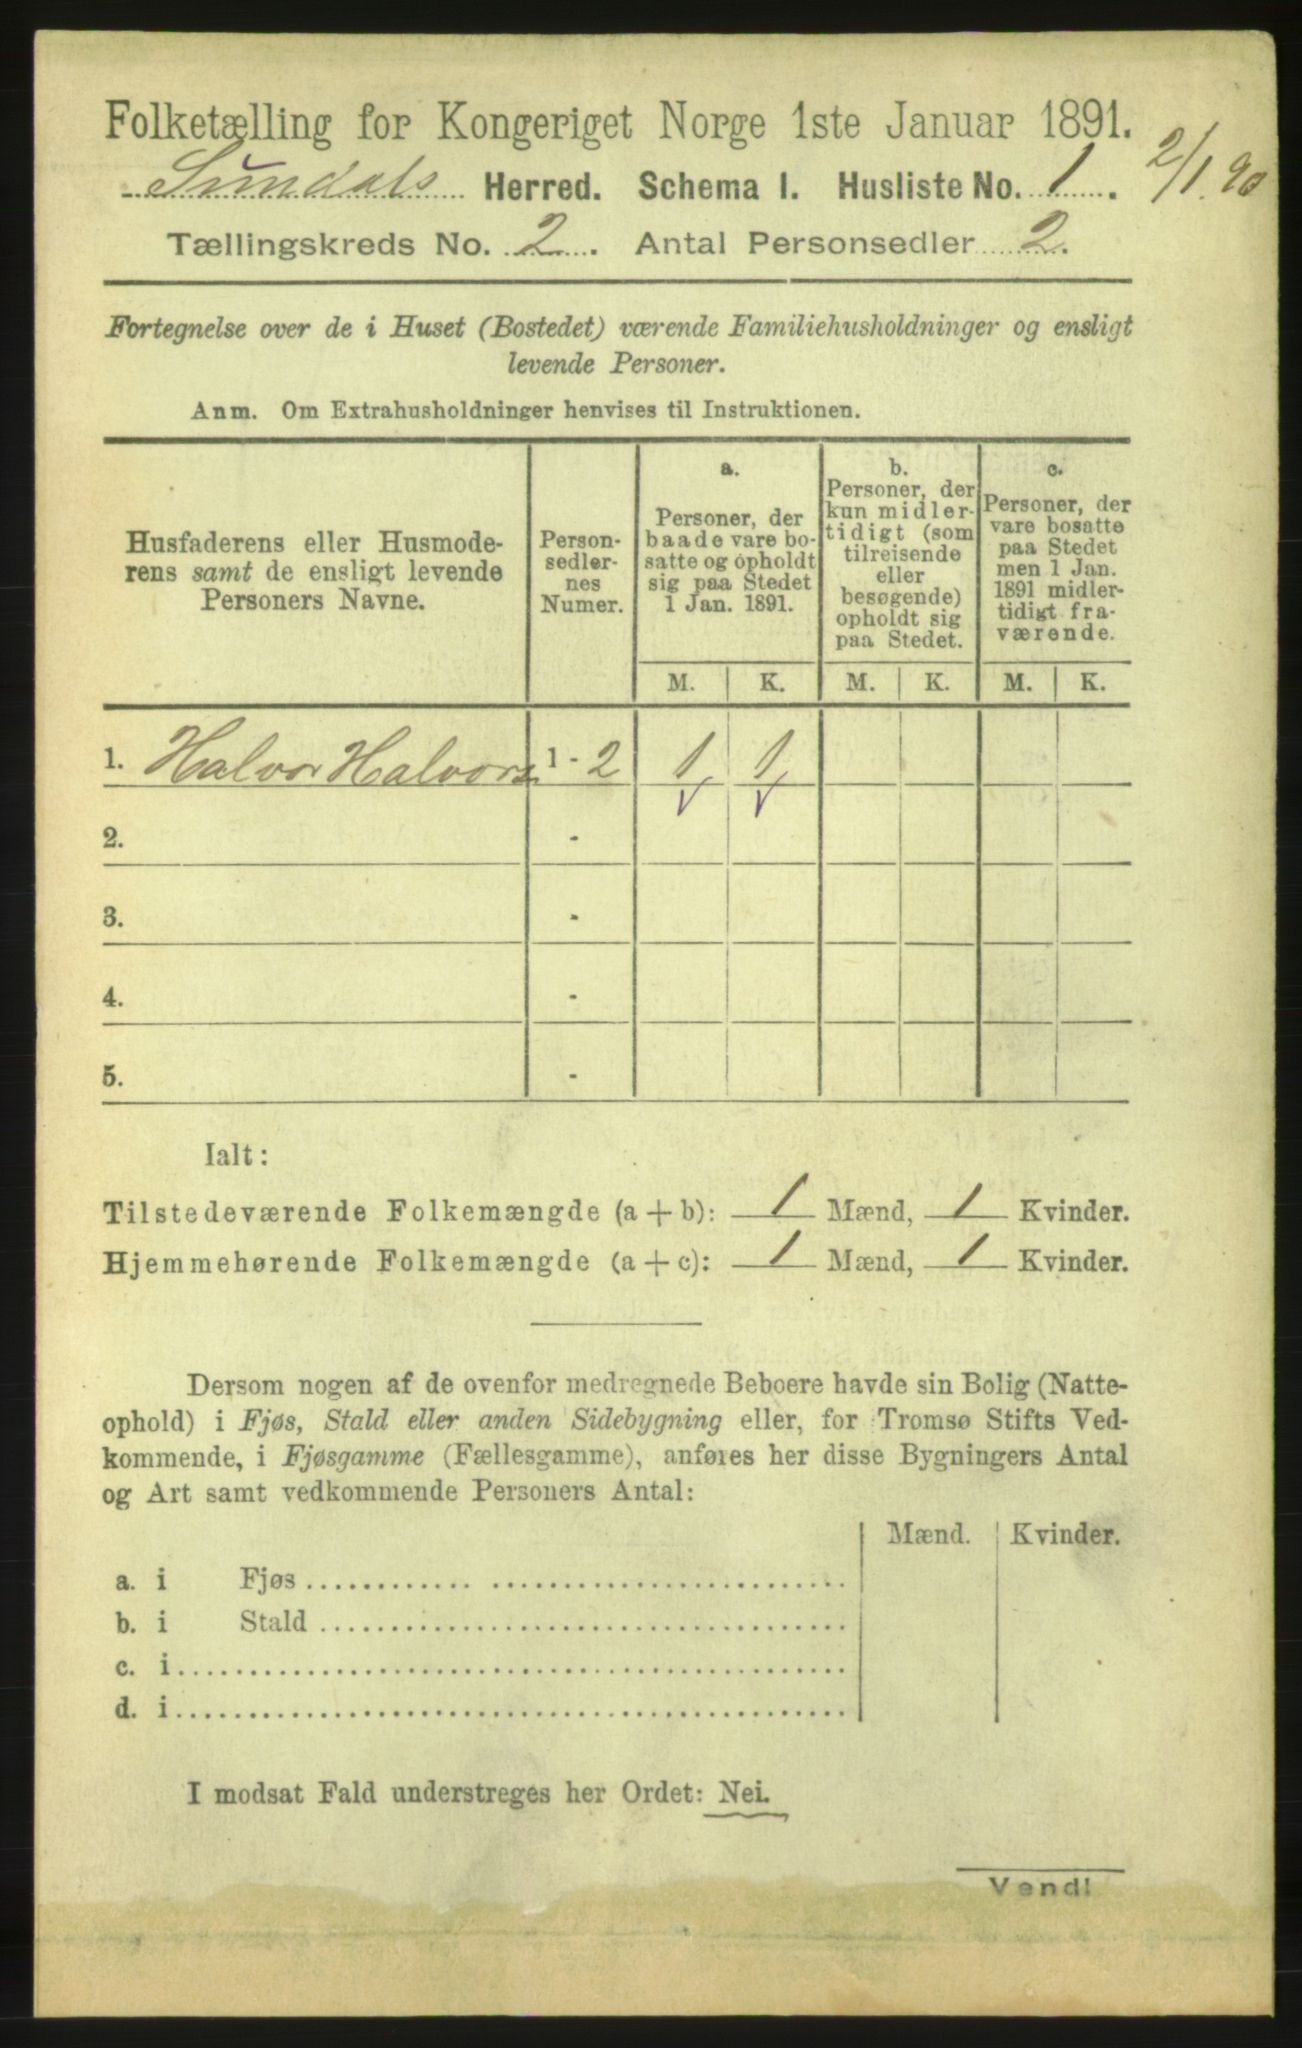 Folketælling for Kongeriget Norge 1ste Januar 1891.
2/1.90
Sundals Herred. Schema I. Husliste No. 1.
Tællingskreds No. 2. Antal Personsedler 2.
Fortegnelse over de i Huset (Bostedet) værende Familiehusholdninger og ensligt
levende Personer.
Anm. Om Extrahusholdninger henvises til Instruktionen.
Husfaderens eller Husmode-
rens samt de ensligt levende
Personers Navne.
Person-
sedler-
nes
Numer.
a.
Personer, der
baade vare bo-
satte og opholdt
sig paa Stedet
1 Jan. 1891.
b.
Personer, der
kun midler-
tidigt (som
tilreisende
eller
besøgende)
opholdt sig
paa Stedet.
c.
Personer, der
vare bosatte
paa Stedet
men 1 Jan.
1891 midler-
tidigt fra-
værende.
M. K. M. K. M. K.
1. Halvor Halvors. 1 - 2 1 1
2. -
3. -
4. -
5. -
Ialt:
Tilstedeværende Folkemængde (a + b): 1 Mænd, 1 Kvinder.
Hjemmehørende Folkemængde (a + c): 1 Mænd, 1 Kvinder.
Dersom nogen af de ovenfor medregnede Beboere havde sin Bolig (Natte-
ophold) i Fjøs, Stald eller anden Sidebygning eller, for Tromsø Stifts Ved-
kommende, i Fjøsgamme (Fællesgamme), anføres her disse Bygningers Antal
og Art samt vedkommende Personers Antal:
Mænd. Kvinder.
a. i Fjøs
b. i Stald
c. i
d. i
I modsat Fald understreges her Ordet: Nei.
Vend!